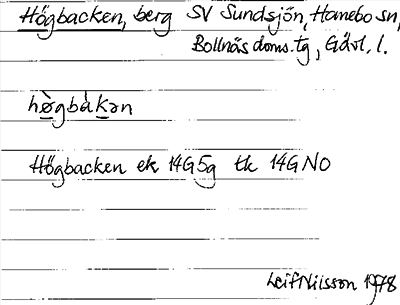 Högbacken, berg SV Sundsjön, Hanebo sn,
Bollnäs doms. tg, Gävl. l.
hø̀gbàkən
Högbacken ek 14G5g tk 14G NO
Leif Nilsson 1978